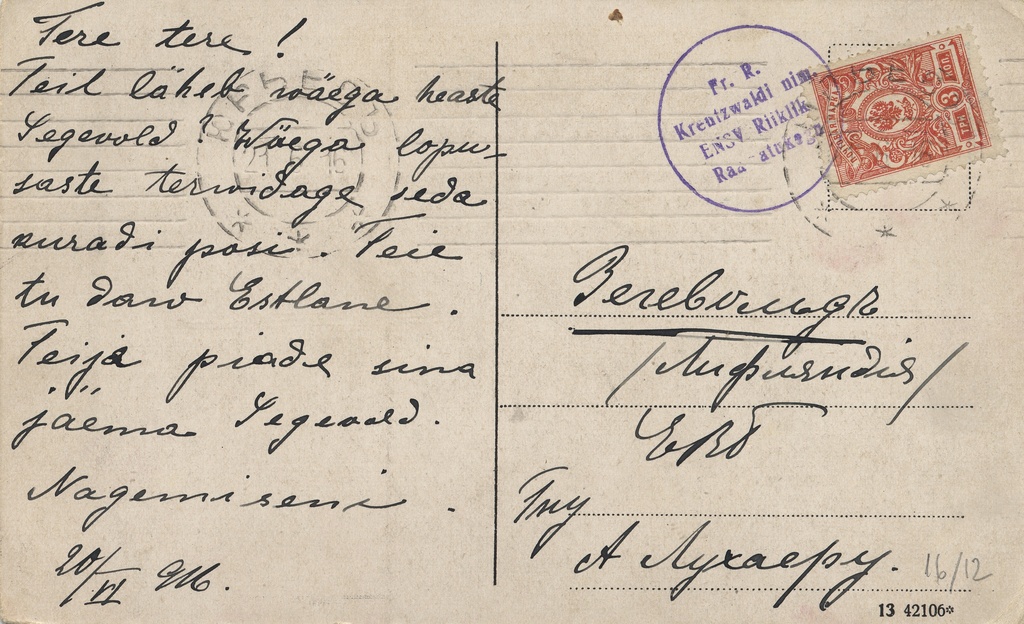 Tere tere!
Teil läheb wäega heaste
Segevold? Wäega lopu-
saste terwidage seda
kuradi posi. Teie
tu daw Estlane.
Teija piade sina
jäema Segevold.
Nagemiseni.
20/VI 916.
Fr. R.
Kreutzwaldi nim.
ENSV Riiklik
Зегевольдъ
/Лифляндія/
ЕВБ
Гну
А Лухаеру.
16/12
13 42106*